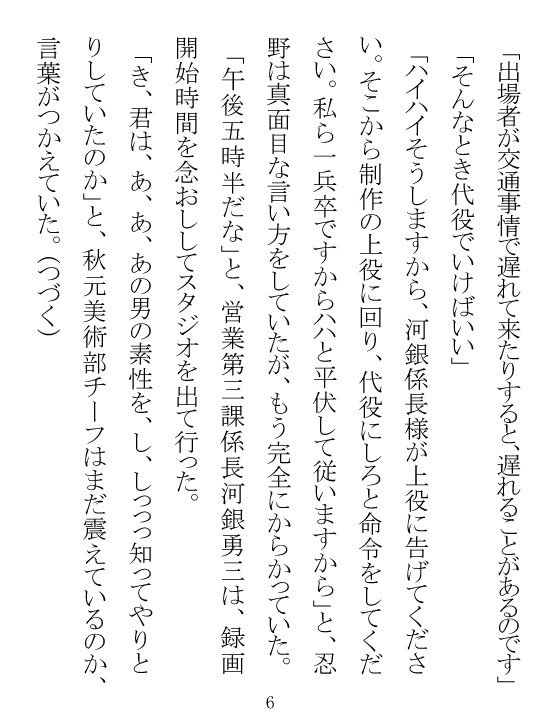 「出場者が交通事情で遅れて来たりすると、遅れることがあるのです」
「そんなとき代役でいけばいい」
「ハイハイそうしますから、河銀係長様が上役に告げてくださ
い。そこから制作の上役に回り、代役にしろと命令をしてくだ
さい。私ら一兵卒ですからハハと平伏して従いますから」と、忍
野は真面目な言い方をしていたが、もう完全にからかっていた。
「午後五時半だな」と、営業第三課係長河銀勇三は、録画
開始時間を念おししてスタジオを出て行った。
「き、君は、あ、あ、あの男の素性を、し、しっっっ知ってやりと
りしていたのか」と、秋元美術部チーフはまだ震えているのか、
言葉がつかえていた。（つづく）
6